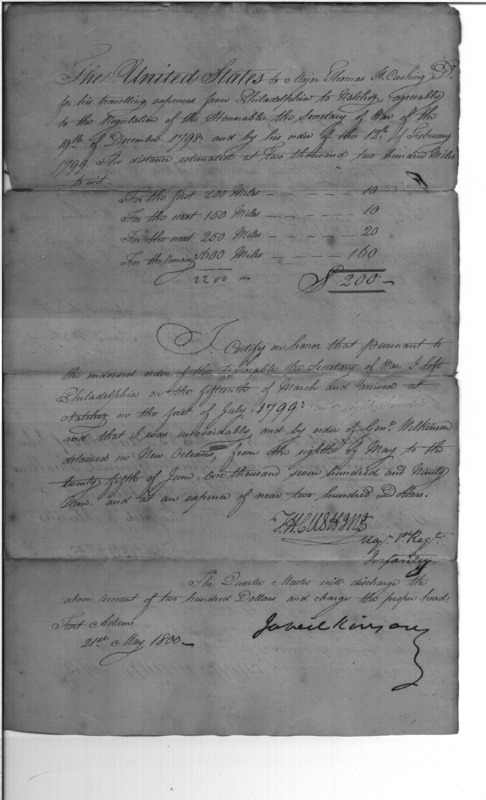 The United States to Major Thomas H. Cushing Dr.
for his travelling expences from Philadelphia to Natchez, agreeably
to the Regulation of the Honorable the Secretary of War of the
19th of December 1798. and by his order of the 12th of February
1799. The distance estimated at Two thousand two hundred Miles
to wit
For the first 200 Miles - - - - - 10
For the next 150 Miles - - - - - 10
For the next 250 Miles - - - - - 20
For the remaing 1600 Miles - - - - 160
2200 $ 200
I Certify on honor that pursuant to
the endorsed order of the Honorable the Secretary of War I left
Philadelphia on the fifteenth of March and arrived at
Natchez on the first of July 1799:
and that I was unavoidably and by order of Genl. Wilkinson
detained in New Orleans, from the eighth of May to the
twenty fifth of June, One thousand seven hundred and Ninety
Nine. and at an expence of near two hundred Dollars.
T H CUSHING
Majr. 1st Regt.
Infantry
The Quarter Master will discharge the
above Account of two hundred Dollars and charge the proper head.
Fort Adams
21st May 1800
Ja Wilkinson